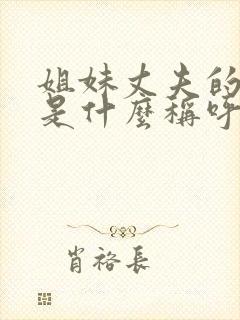 姐妹丈夫的
是什麼稱呼
肖裕長